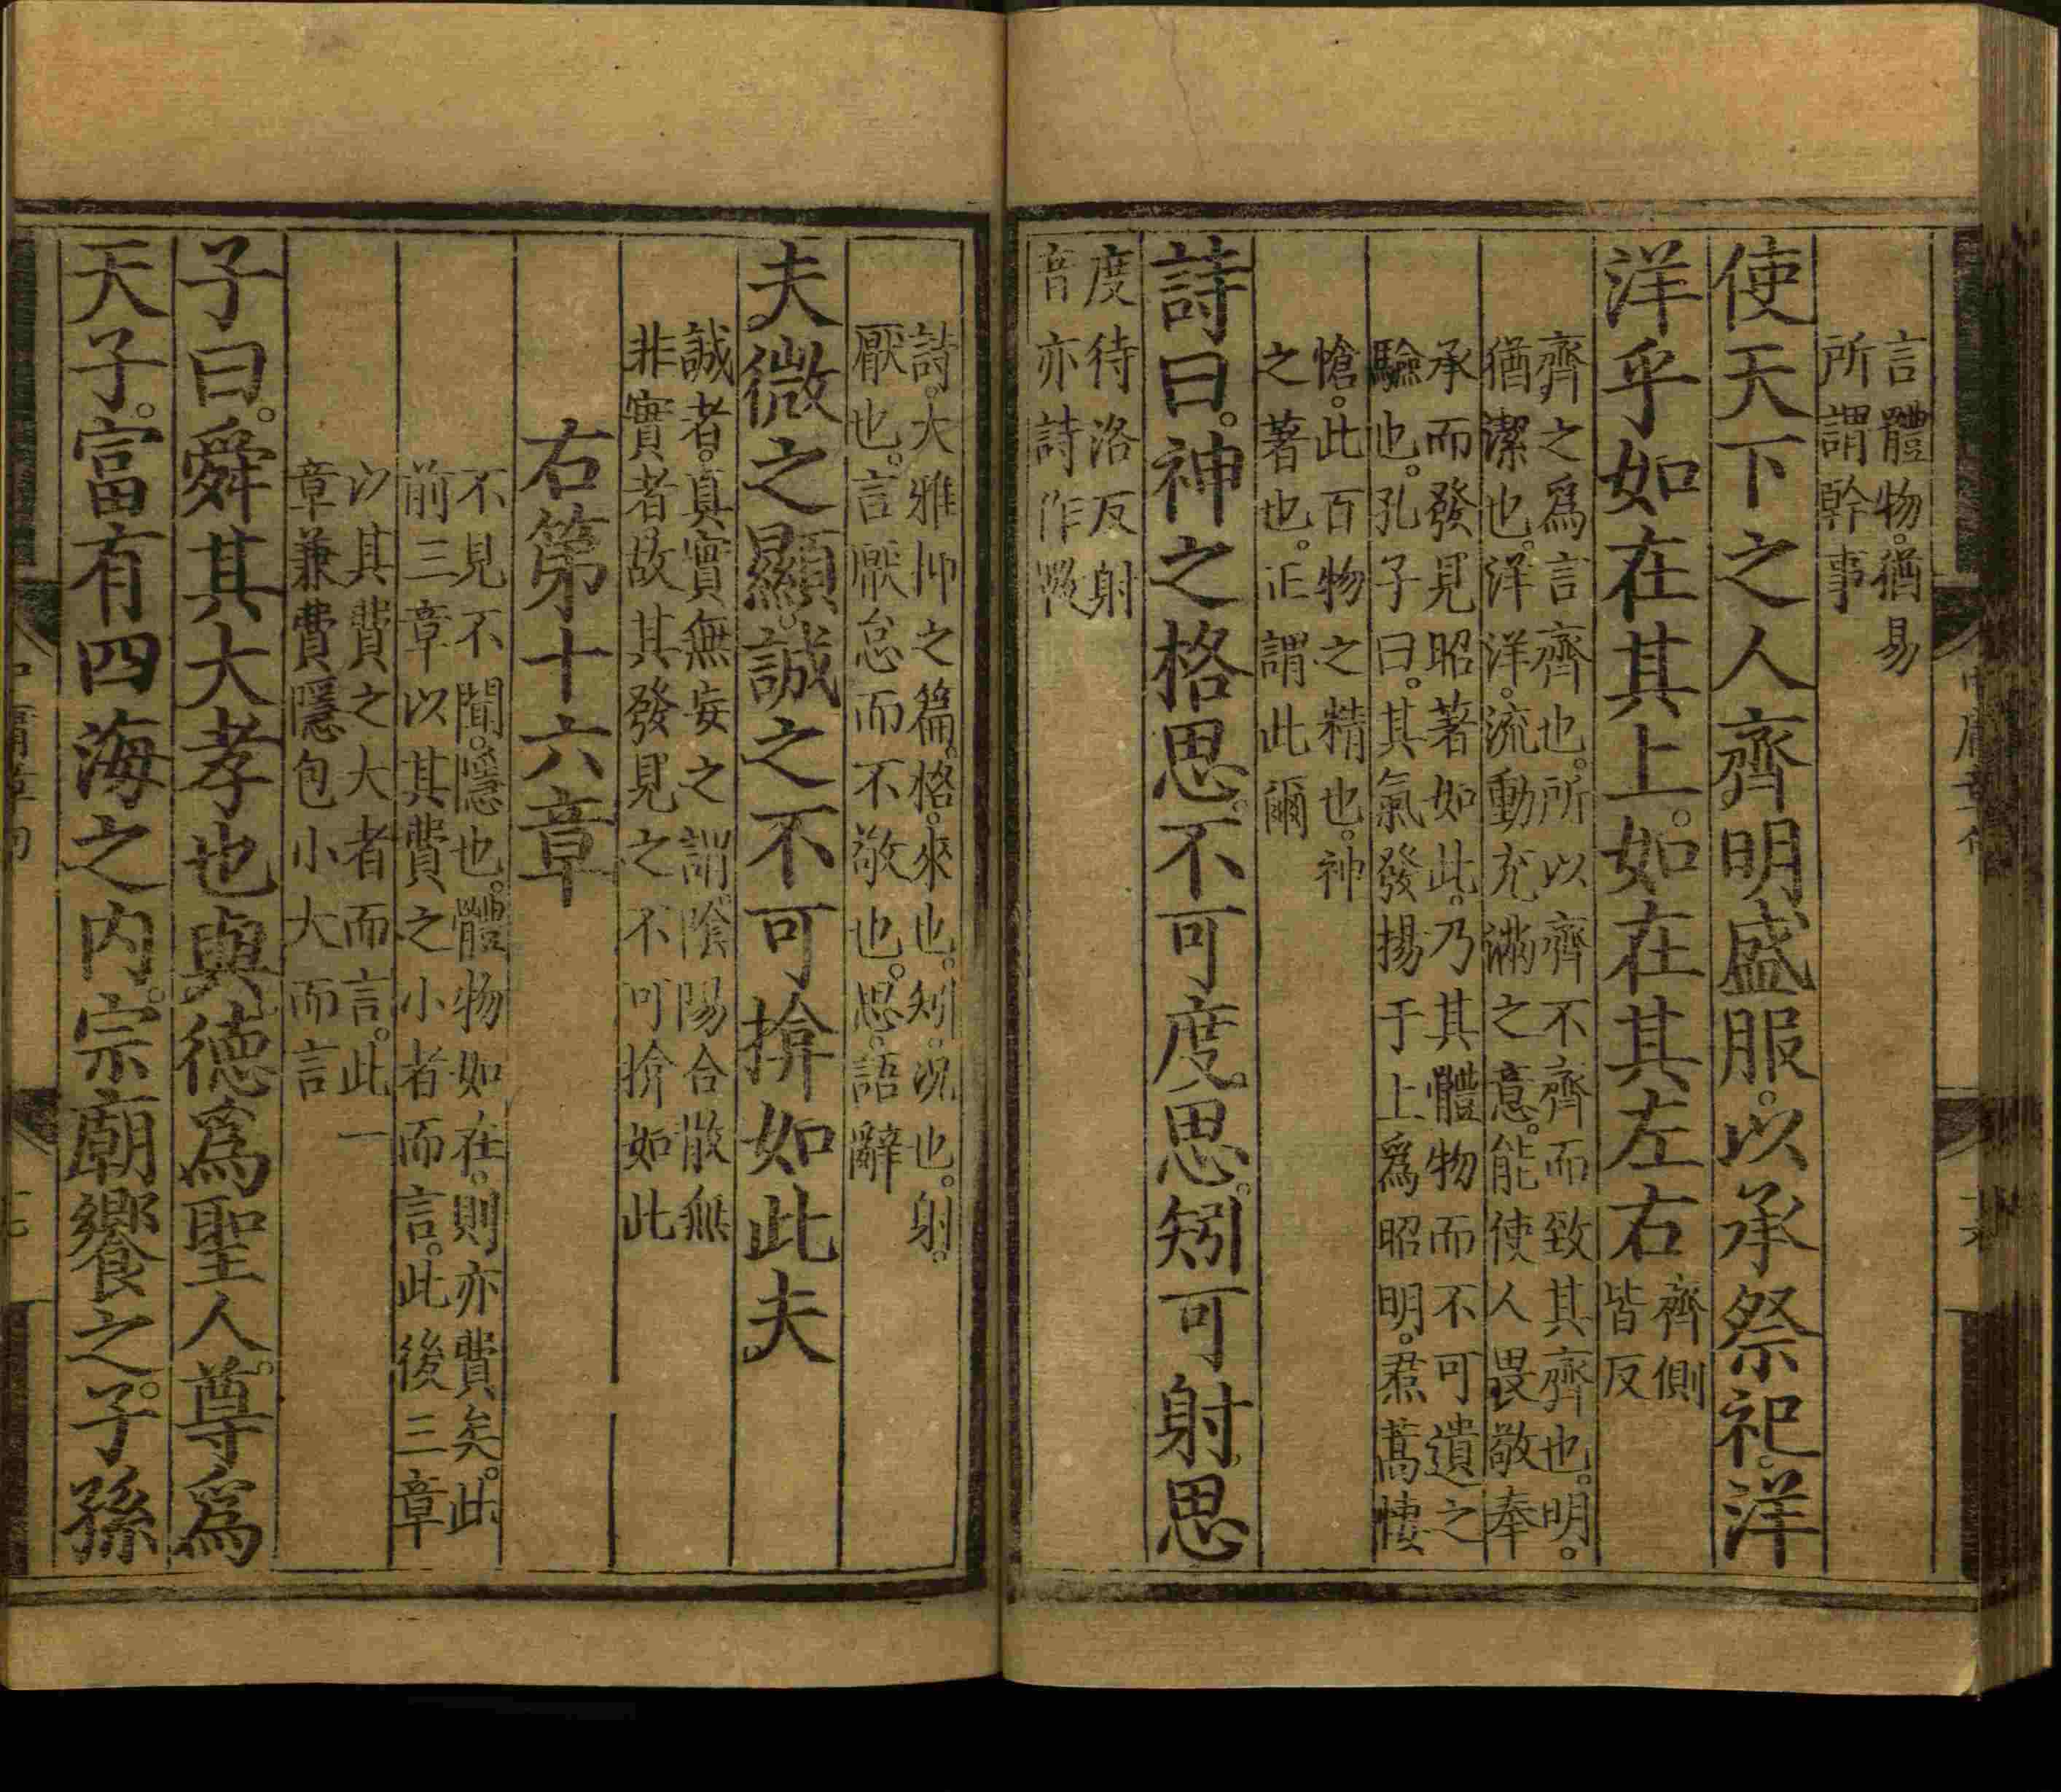 言體物。猶易
所謂幹事
使天下之人齊明盛服。以承祭祀。洋
洋乎如在其上。如在其左右
齊側
皆反
齊之爲言齊也。所以齊不齊而致其齊也。明。
猶潔也。洋洋。流動充滿之意。能使人畏敬奉
承而發見昭著如此。乃其體物而不可遺之
驗也。孔子曰。其氣發揚于上爲昭明。焄蒿悽
愴。此百物之精也。神
之著也。正謂此爾
詩曰。神之格思。不可度思。矧可射思
度待洛反射
音亦詩作斁
詩。大雅抑之篇。格。來也。矧。況也。射。
厭也。言厭怠而不敬也。思。語辭
夫微之顯。誠之不可揜如此夫
誠者。真實無妄之謂。陰陽合散無
非實者。故其發見之不可揜如此
右第十六章
不見不聞。隱也。體物如在。則亦費矣。此
前三章以其費之小者而言。此後三章
以其費之大者而言。此一
章兼費隱包小大而言
子曰。舜其大孝也與。德爲聖人。尊爲
天子。富有四海之內。宗廟饗之。子孫